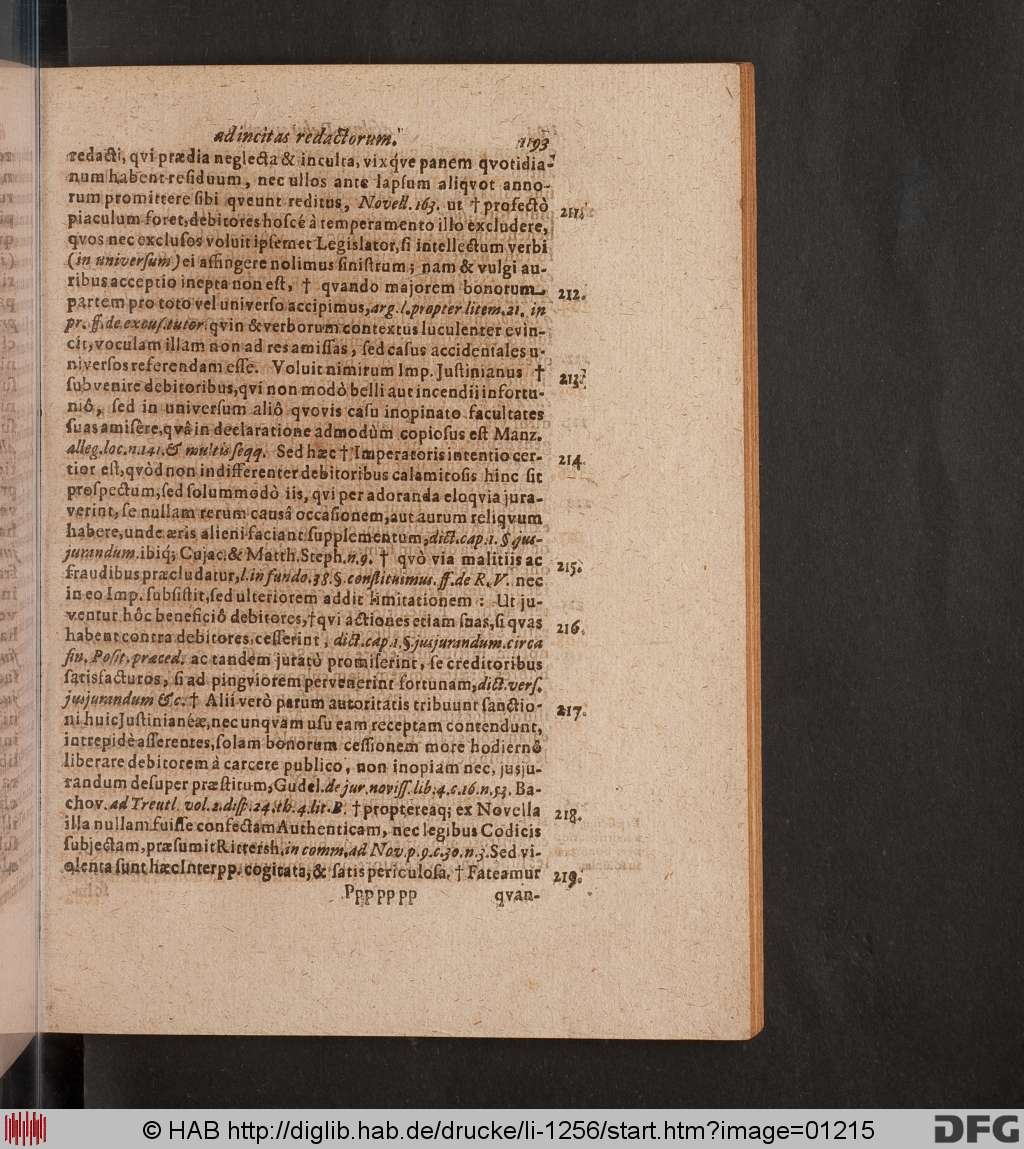 ad incitas redactorum. 1193
redacti, qvi prædia neglecta & inculta, vixq́ve panem qvotidia-
num habent residuum, nec ullos ante lapsum aliqvot anno-
rum promittere sibi qveunt reditus, Novell. 163. ut † profectò 211.
piaculum foret, debitores hosce à temperamento illo excludere,
qvos nec exclusos voluit ipsemet Legislator, si intellectum verbi
(in universum) ei affingere nolimus sinistrum; nam & vulgi au-
ribus acceptio inepta non est, † qvando majorem bonorum 212.
partem pro toto vel universo accipimus, arg. l. propter litem. 21. in
pr. ff. de excus. tutor. qvin & verborum contextus luculenter evin-
cit, voculam illam non ad res amissas, sed casus accidentales u-
niversos referendam esse. Voluit nimirum Imp. Justinianus † 213.
subvenire debitoribus, qvi non modò belli aut incendii infortu-
niô, sed in universum aliô qvovis casu inopinato facultates
suas amisêre, qvâ in declaratione admodùm copiosus est Manz.
alleg. loc. n. 141. & multis seqq. Sed hæc † Imperatoris intentio cer- 214.
tior est, qvòd non indifferenter debitoribus calamitosis hinc sit
prospectum, sed solummodò iis, qvi per adoranda eloqvia jura-
verint, se nullam rerum causâ occasionem, aut aurum reliqvum
habere, unde æris alieni faciant supplementum, dict. cap. 1. §. jus-
jurandum. ibiq; Cujac. & Matth. Steph. n. 9. † qvò via malitiis ac 215.
fraudibus præcludatur, l. in fundo. 38. §. constituimus. ff. de R. V. nec
in eo Imp. subsistit, sed ulteriorem addit limitationem: Ut ju-
ventur hôc beneficiô debitores, † qvi actiones etiam suas, si qvas 216.
habent contra debitores, cesserint, dict. cap. 1. §. jusjurandum. circa
fin. Posit. præced. ac tandem juratò promiserint, se creditoribus
satisfacturos, si ad pingviorem pervenerint fortunam, dict. vers.
jusjurandum &c. † Alii verò parum autoritatis tribuunt sanctio- 217.
ni huic Justinianéæ, nec unqvam usu eam receptam contendunt,
intrepidè asserentes, solam bonorum cessionem more hodiernô
liberare debitorem à carcere publico, non inopiam nec, jusju-
randum desuper præstitum, Gudel. de jur. noviss. lib. 4. c. 16. n. 53. Ba-
chov. ad Treutl. vol. 2. disp. 24. th. 4. lit. B. † proptereaq; ex Novella 218.
illa nullam fuisse confectam Authenticam, nec legibus Codicis
subjectam, præsumit Rittersh. in comm. ad Nov. p. 9. c. 30. n. 3. Sed vi-
olenta sunt hæc Interpp. cogitata, & satis periculosa. † Fateamur 219.
Ppp pp pp qvan-
© HAB http://diglib.hab.de/drucke/li-1256/start.htm?image=01215 DFG